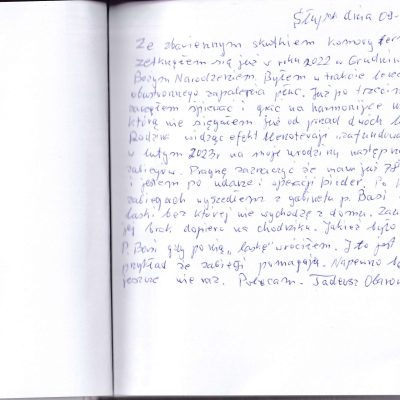 Słupsk dnia 09-
Ze zbawiennym skutkiem komory
zetknąłem się już w roku 2022 w Grudniu
Bożym Narodzeniem. Byłem w trakcie
obustronnego zapalenia płuc. Już po trzecim
zacząłem śpiewać i grać na harmonijce
którą nie sięgałem już od ponad dwóch
Rodzina widząc efekt
w lutym 2023, na moje urodziny następn
zabiegów. Pragnę zaznaczyć że mam już 78
i jestem po udarze i operacji bioder. Po
zabiegach wyszedłem z gabinetu p. Basi
laski bez której nie wychodzę z domu.
jej brak dopiero na chodniku. Jakież było
P. Basi gdy po nią "laskę" wróciłem. I to jest
przykład że zabiegi pomagają. Napewno
jeszcze nie raz. Polecam. Tadeusz